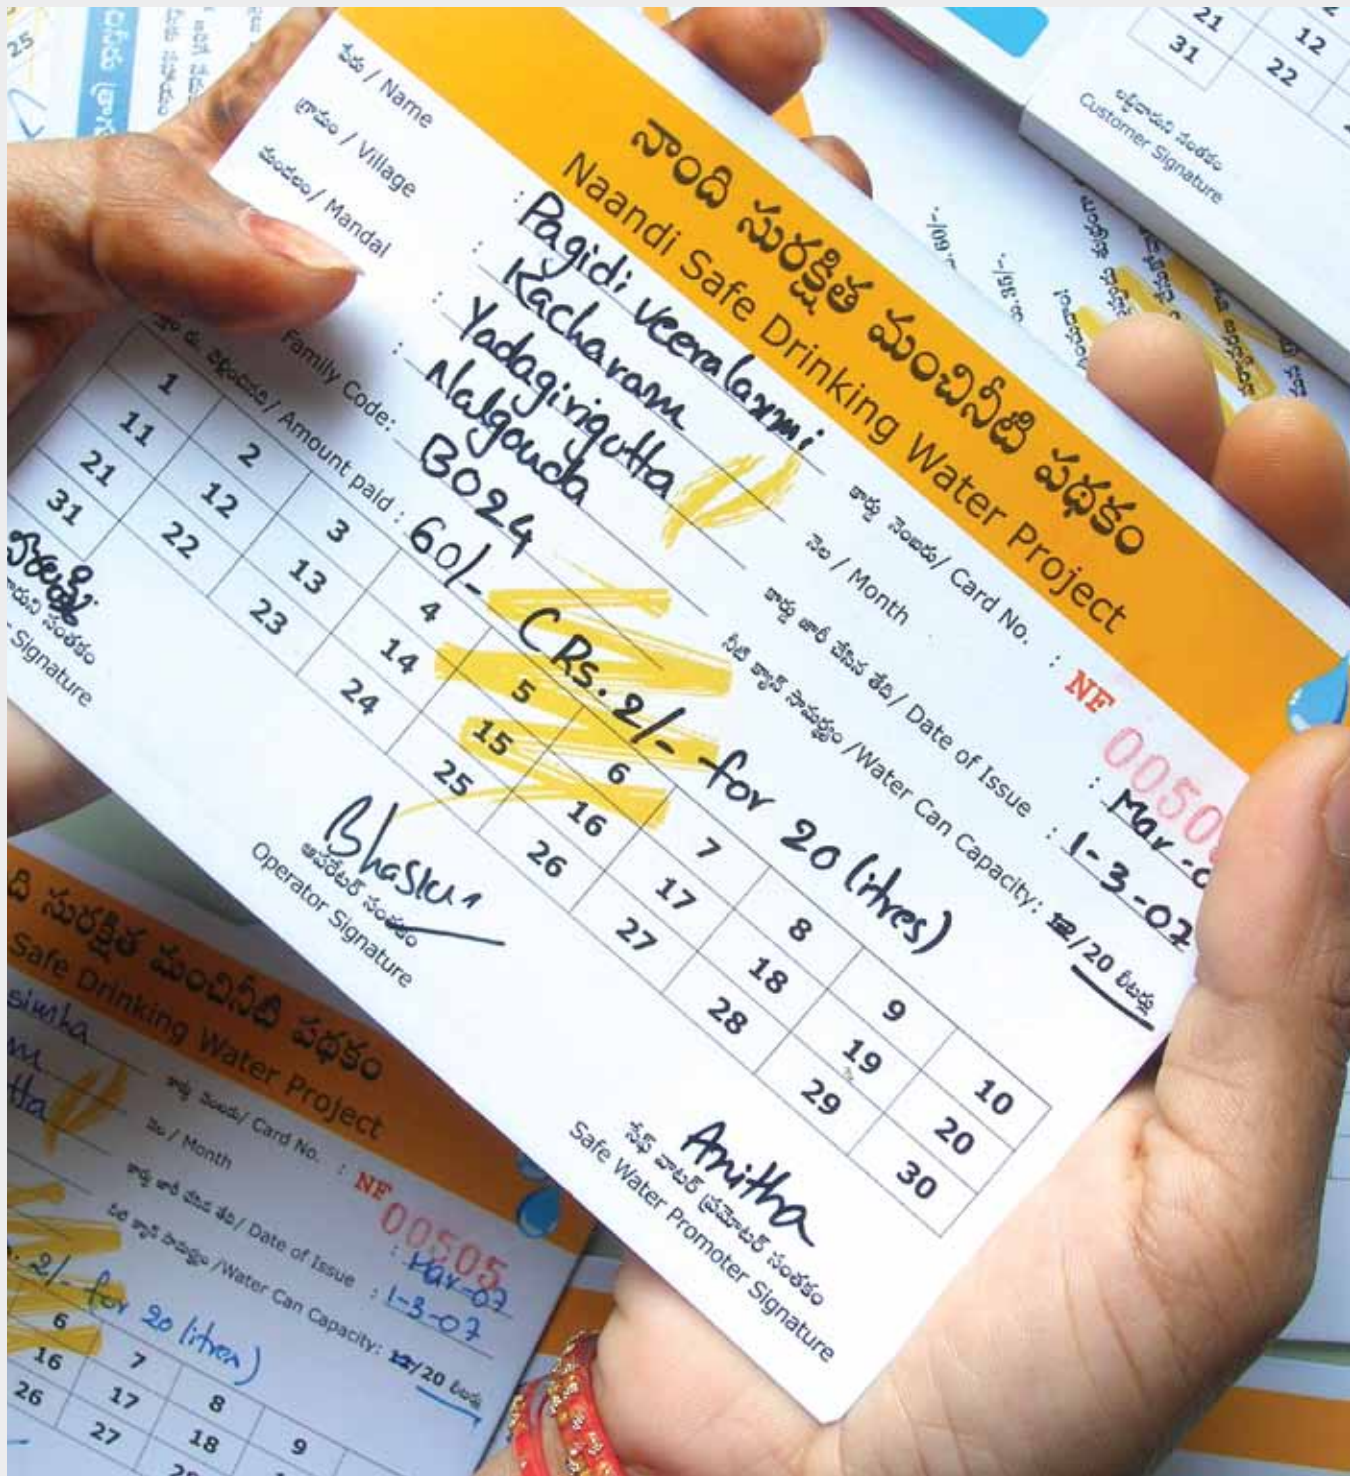 నాంది సురక్షిత మంచినీటి పథకం
Naandi Safe Drinking Water Project
పేరు / Name : Pagidi Veeralaxmi
గ్రామం / Village : Kacharam
మండలం/ Mandal : Yadagirigutta
: Nalgonda
Family Code: B024
/ Amount paid : 60/- (Rs.2/- for 20 litres)
కార్డు నెంబరు/ Card No. : NF 0050
నెల / Month : Mar-0
కార్డు జారీ చేసిన తేది/ Date of Issue : 1-3-07
నీటి క్యాన్ సామర్థ్యం /Water Can Capacity: 12/20 లీటర్లు
1 2 3 4 5 6 7 8 9 10
11 12 13 14 15 16 17 18 19 20
21 22 23 24 25 26 27 28 29 30
31
సంతకం
Signature
Bhaskar
ఆపరేటర్ సంతకం
Operator Signature
Anitha
సేఫ్ వాటర్ ప్రమోటర్ సంతకం
Safe Water Promoter Signature
21 12
31 22
సంతకం
Customer Signature
.60/-.
.35/-.
25
ది సురక్షిత మంచినీటి పథకం
Safe Drinking Water Project
simha
m
tta
కార్డు నెంబరు/ Card No. : NF 00505
నెల / Month : Mar-07
కార్డు జారీ చేసిన తేది/ Date of Issue : 1-3-07
నీటి క్యాన్ సామర్థ్యం /Water Can Capacity: 12/20 లీటర్లు
. 2/- for 20 litres)
6 7 8 9
16 17 18
26 27